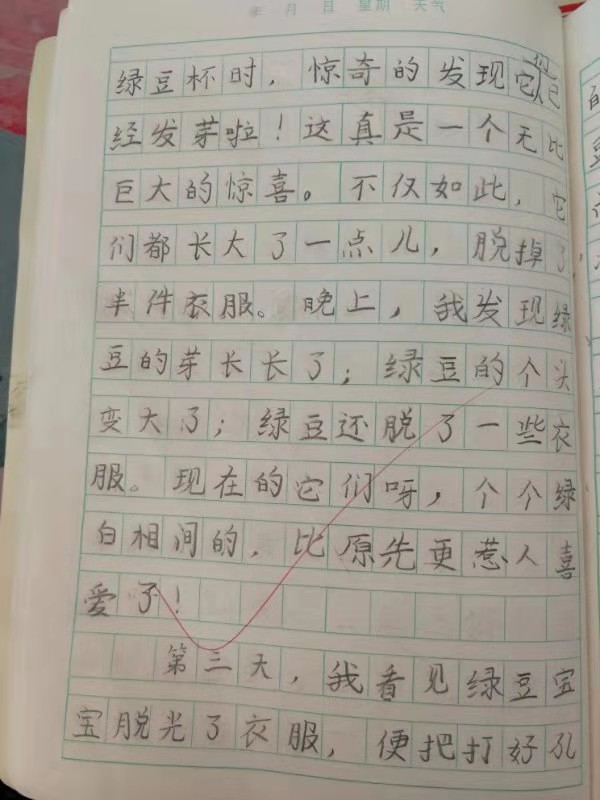 年 月 日 星期 天气
绿豆杯时，惊奇的发现它们已
经发芽啦！这真是一个无比
巨大的惊喜。不仅如此，它
们都长大了一点儿，脱掉了
半件衣服。晚上，我发现绿
豆的芽长长了；绿豆的个头
变大了；绿豆还脱了一些衣
服。现在的它们呀，个个绿
白相间的，比原先更惹人喜
爱了！
第三天，我看见绿豆宝
宝脱光了衣服，便把打好孔